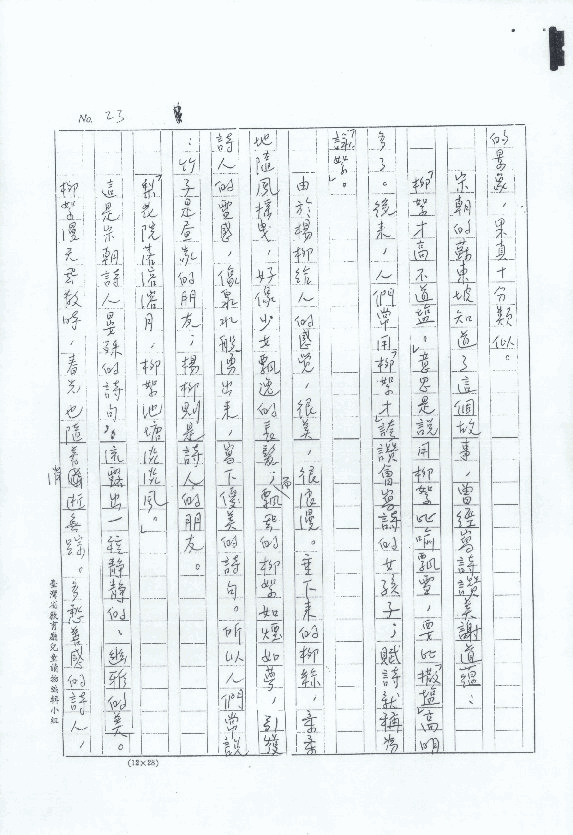 No. 23
的景象，果真十分類似。
宋朝的蘇東坡知道了這個故事，曾經寫詩讚美謝道蘊：
「柳絮才高不道鹽。」意思是說用柳絮比喻飄雪，要比「撒鹽」高明
多了。後來，人們常用「柳絮才」誇讚會寫詩的女孩子；賦詩就稱為
「詠絮」。
由於楊柳給人的感覺，很美，很浪漫。垂下來的柳絲，柔柔
地隨風搖曳，好像少女飄逸的長髮；而飄絮的柳絮如煙如夢，引發
詩人的靈感，像泉水般湧出來，寫下優美的詩句。所以人們常說
：竹子是畫家的朋友；楊柳則是詩人的朋友。
「梨花院落溶溶月，柳絮池塘淡淡風。」
這是宋朝詩人晏殊的詩句。流露出一種靜靜的、幽雅的美。
柳絮漫天飛散時，春光也隨著消逝無蹤。多愁善感的詩人，
臺灣省教育廳兒童讀物編輯小組
(12×25)